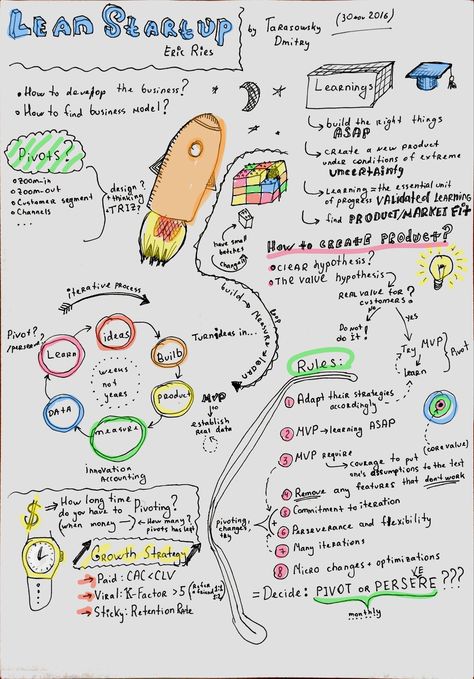 LEAN STARTUP
ERIC RIES
by TARASOWSKY
DMITRY
(30 nov 2016)
• How to develop the business?
• How to find business model?
Pivots?
• Zoom-in
• Zoom-out
• Customer segment
• Channels
...
design?
+ thinking
TRIZ?
have small
batches
changing
build
measure
learn
loop
Learnings
build the right things
ASAP
CREATE A NEW PRODUCT
under conditions of extreme
UNCERTAINTY
Learning = the essential unit
of progress VALIDATED LEARNING
find PRODUCT/MARKET FIT
How to CREATE PRODUCT?
• CLEAR hypothesis?
• The value hypothesis
REAL value for?
customers?
No
yes
Do not
do it!
Try MVP
learn
Pivot
iterative process
Pivot?
/persevere?
ideas
Build
product
measure
DATA
Learn
weeks
not
years
Innovation
Accounting
Turn ideas in...
MVP
to
establish
real data
RULES:
1 Adapt their strategies
accordingly
2 MVP → learning ASAP
3 MVP require
courage to put
one's assumptions to the test
(core value)
4 Remove any features that don't work
5 Commitment to iteration
6 Perseverance and flexibility
7 Many iterations
8 Micro changes + optimizations
= Decide: PIVOT OR PERSERE ???
VE
monthly
pivoting,
changes,
try
$
How long time
do you have to Pivoting?
(when money → ← How many?
pivots has left
Growth Strategy
→ Paid: CAC < CLV
→ Viral: K-Factor > 5
→ Sticky: Retention Rate